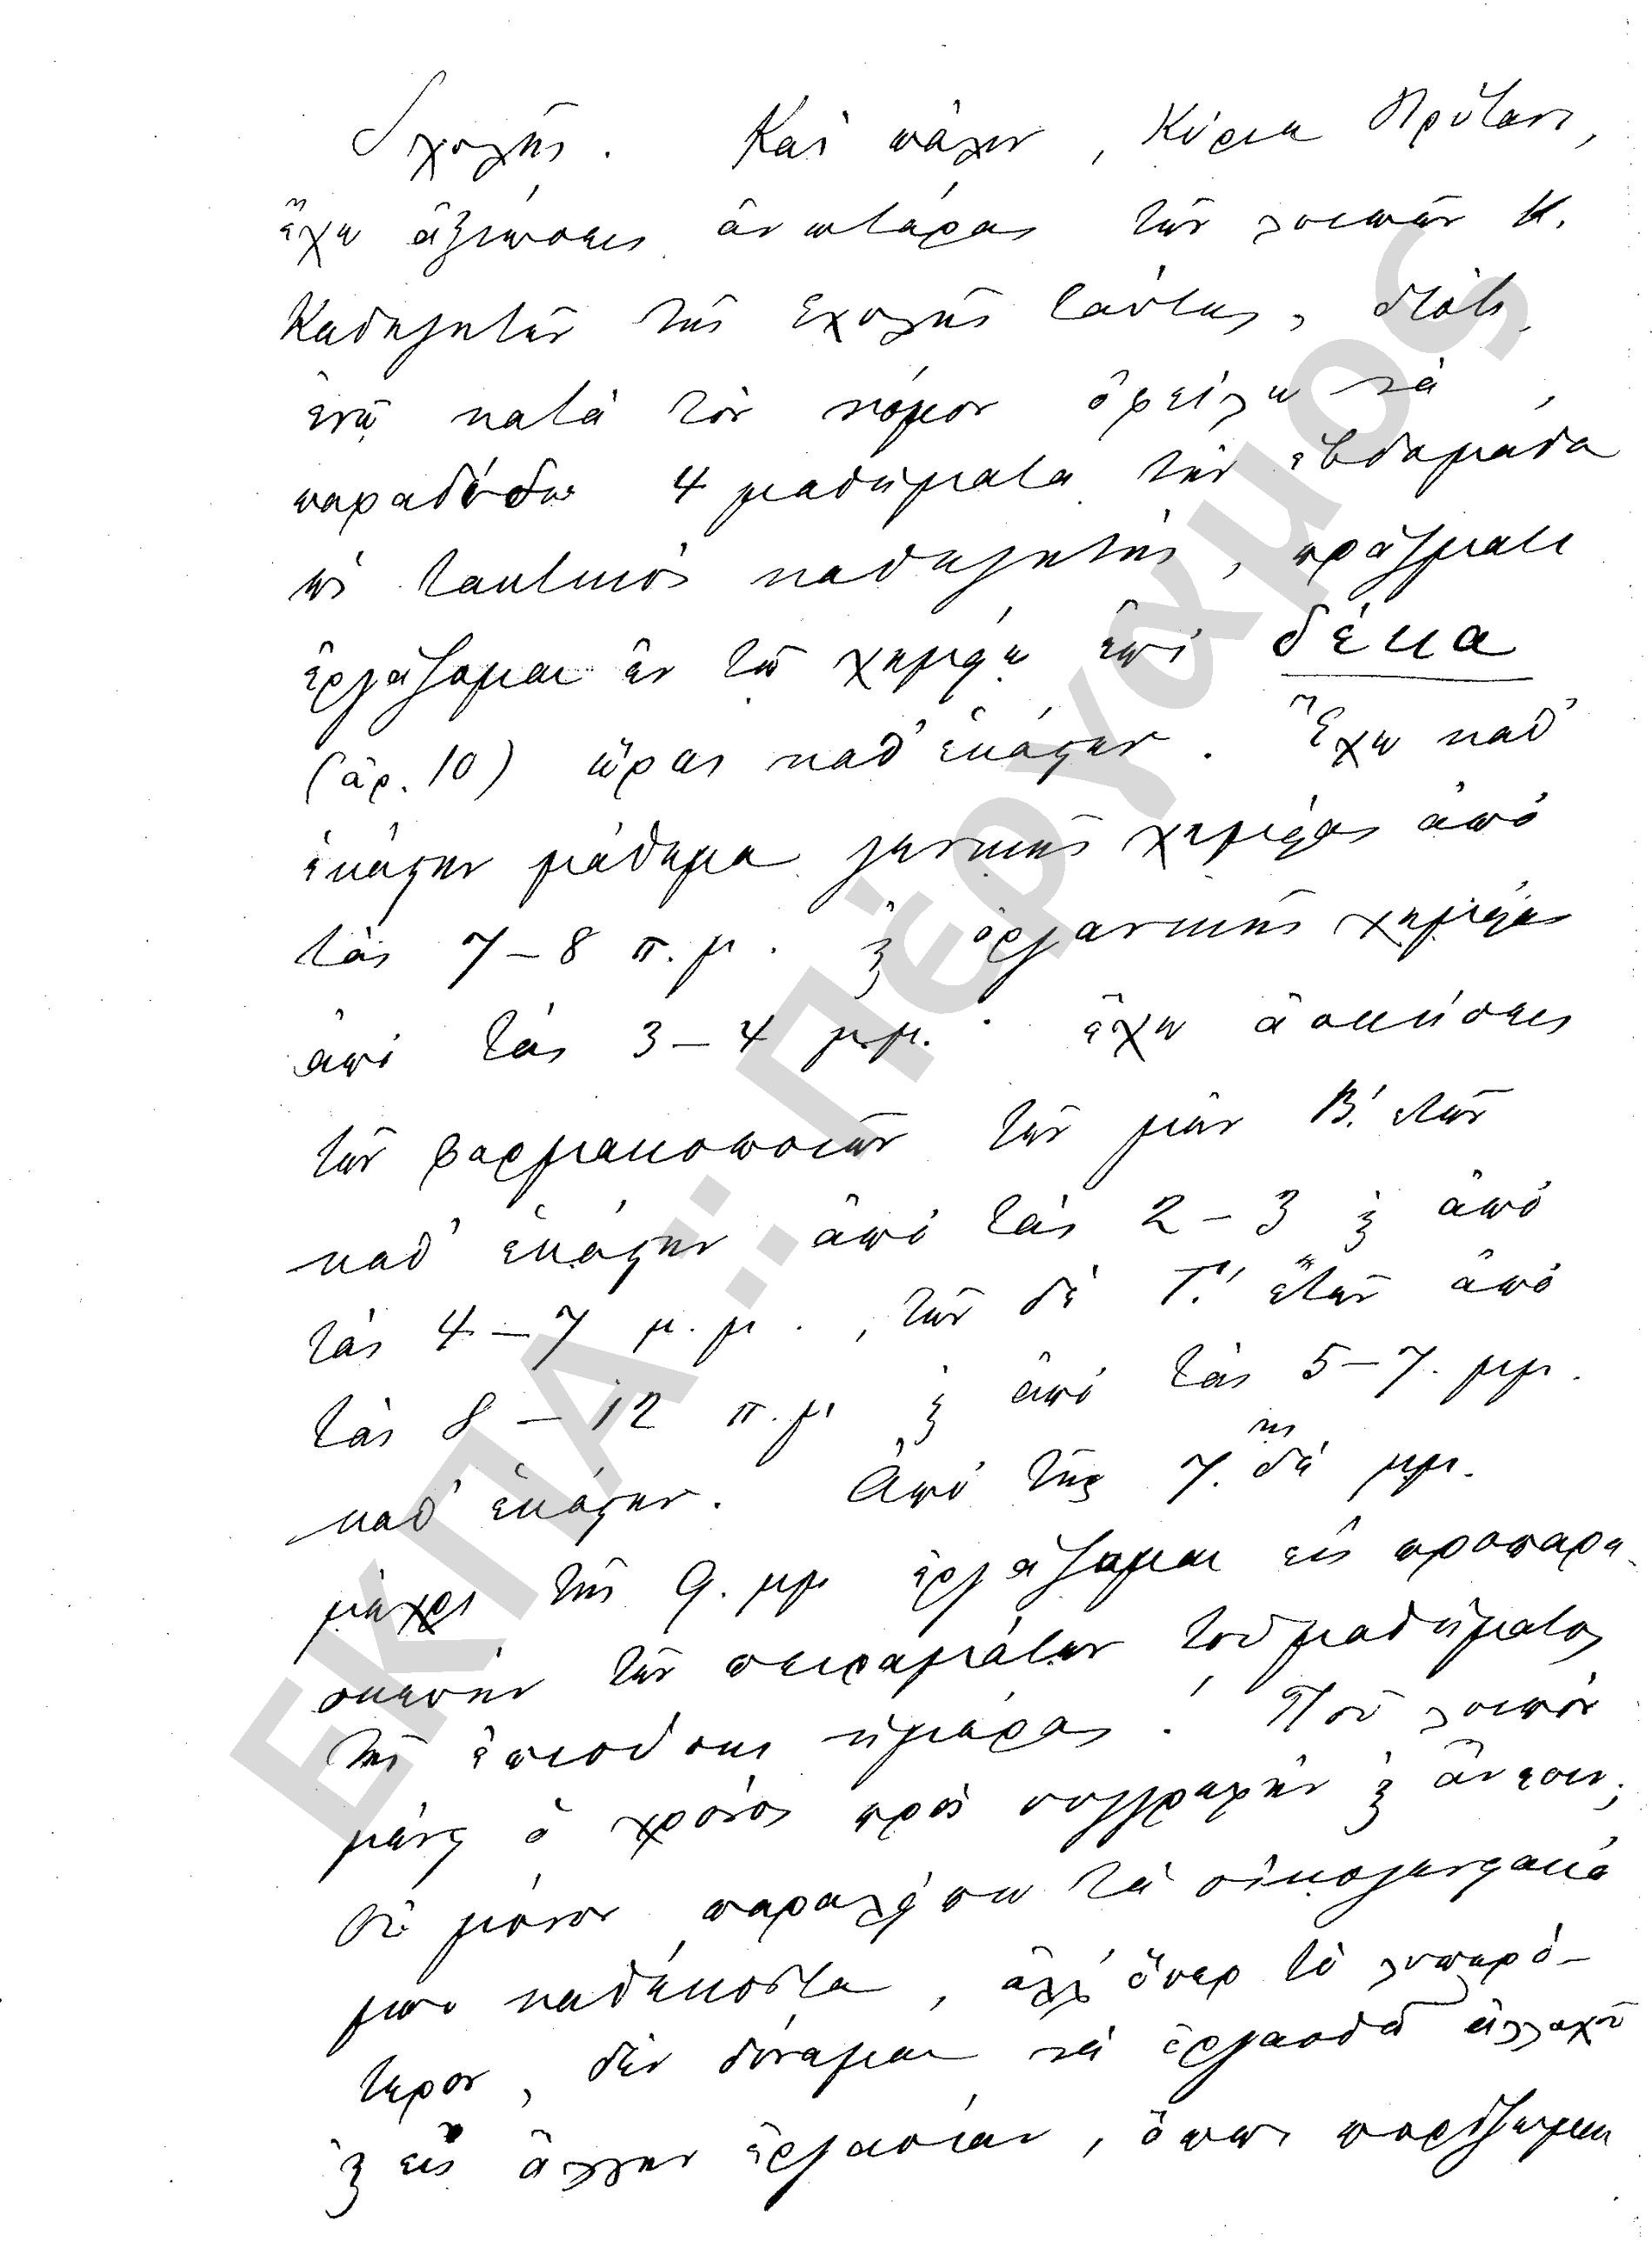 Σχολῆς. Καὶ πάλιν, Κύριε Πρύτανι,
ἔχω ἀξιώσεις ἀνωτέρας τῶν λοιπῶν κ.
Καθηγητῶν τῆς Σχολῆς ταύτης, διότι,
ἐνῷ κατὰ τὸν νόμον ὀφείλω νὰ
παραδίδω 4 μαθήματα τὴν ἑβδομάδα
ὡς τακτικὸς καθηγητής, πράγματι
ἐργάζομαι ἐν τῷ χημείῳ ἐπὶ δέκα
(ἀρ. 10) ὥρας καθ' ἑκάστην. Ἔχω καθ'
ἑκάστην μάθημα γενικῆς χημείας ἀπὸ
τὰς 7–8 π.μ. ϗ ὀργανικῆς χημείας
ἀπὸ τὰς 3–4 μ.μ.· ἔχω ἀσκήσεις
τῶν φαρμακοποιῶν τῶν μὲν Β'. ετῶν
καθ' ἑκάστην ἀπὸ τὰς 2–3 ϗ ἀπὸ
τὰς 4–7 μ.μ., τῶν δὲ Γ'. ἐτῶν ἀπὸ
τὰς 8–12 π.μ ϗ ἀπὸ τὰς 5–7. μμ.
καθ' ἑκάστην. Ἀπὸ τῆς 7.ης δὲ μμ.
μέχρι τῆς 9. μμ ἐργάζομαι εἰς προπαρα-
σκευὴν τῶν πειραμάτων τοῦ μαθήματος
τῆς ἐπιούσης ἡμέρας! Ποῦ λοιπὸν
μένει ὁ χρόνος πρὸς συγγραφὴν ϗ ἄνεσιν;
Οὐ μόνον παραλείπω τὰ οἰκογενειακά
μου καθήκοντα, ἀλλ' ὅπερ τὸ λυπηρό-
τερον, δὲν δύναμαι νὰ ἐργασθῶ ἀλλαχοῦ
ϗ εἰς ἄλλην ἐργασίαν, ὅπως πορίζωμαι
ΕΚΠΑ: Πέργαμος